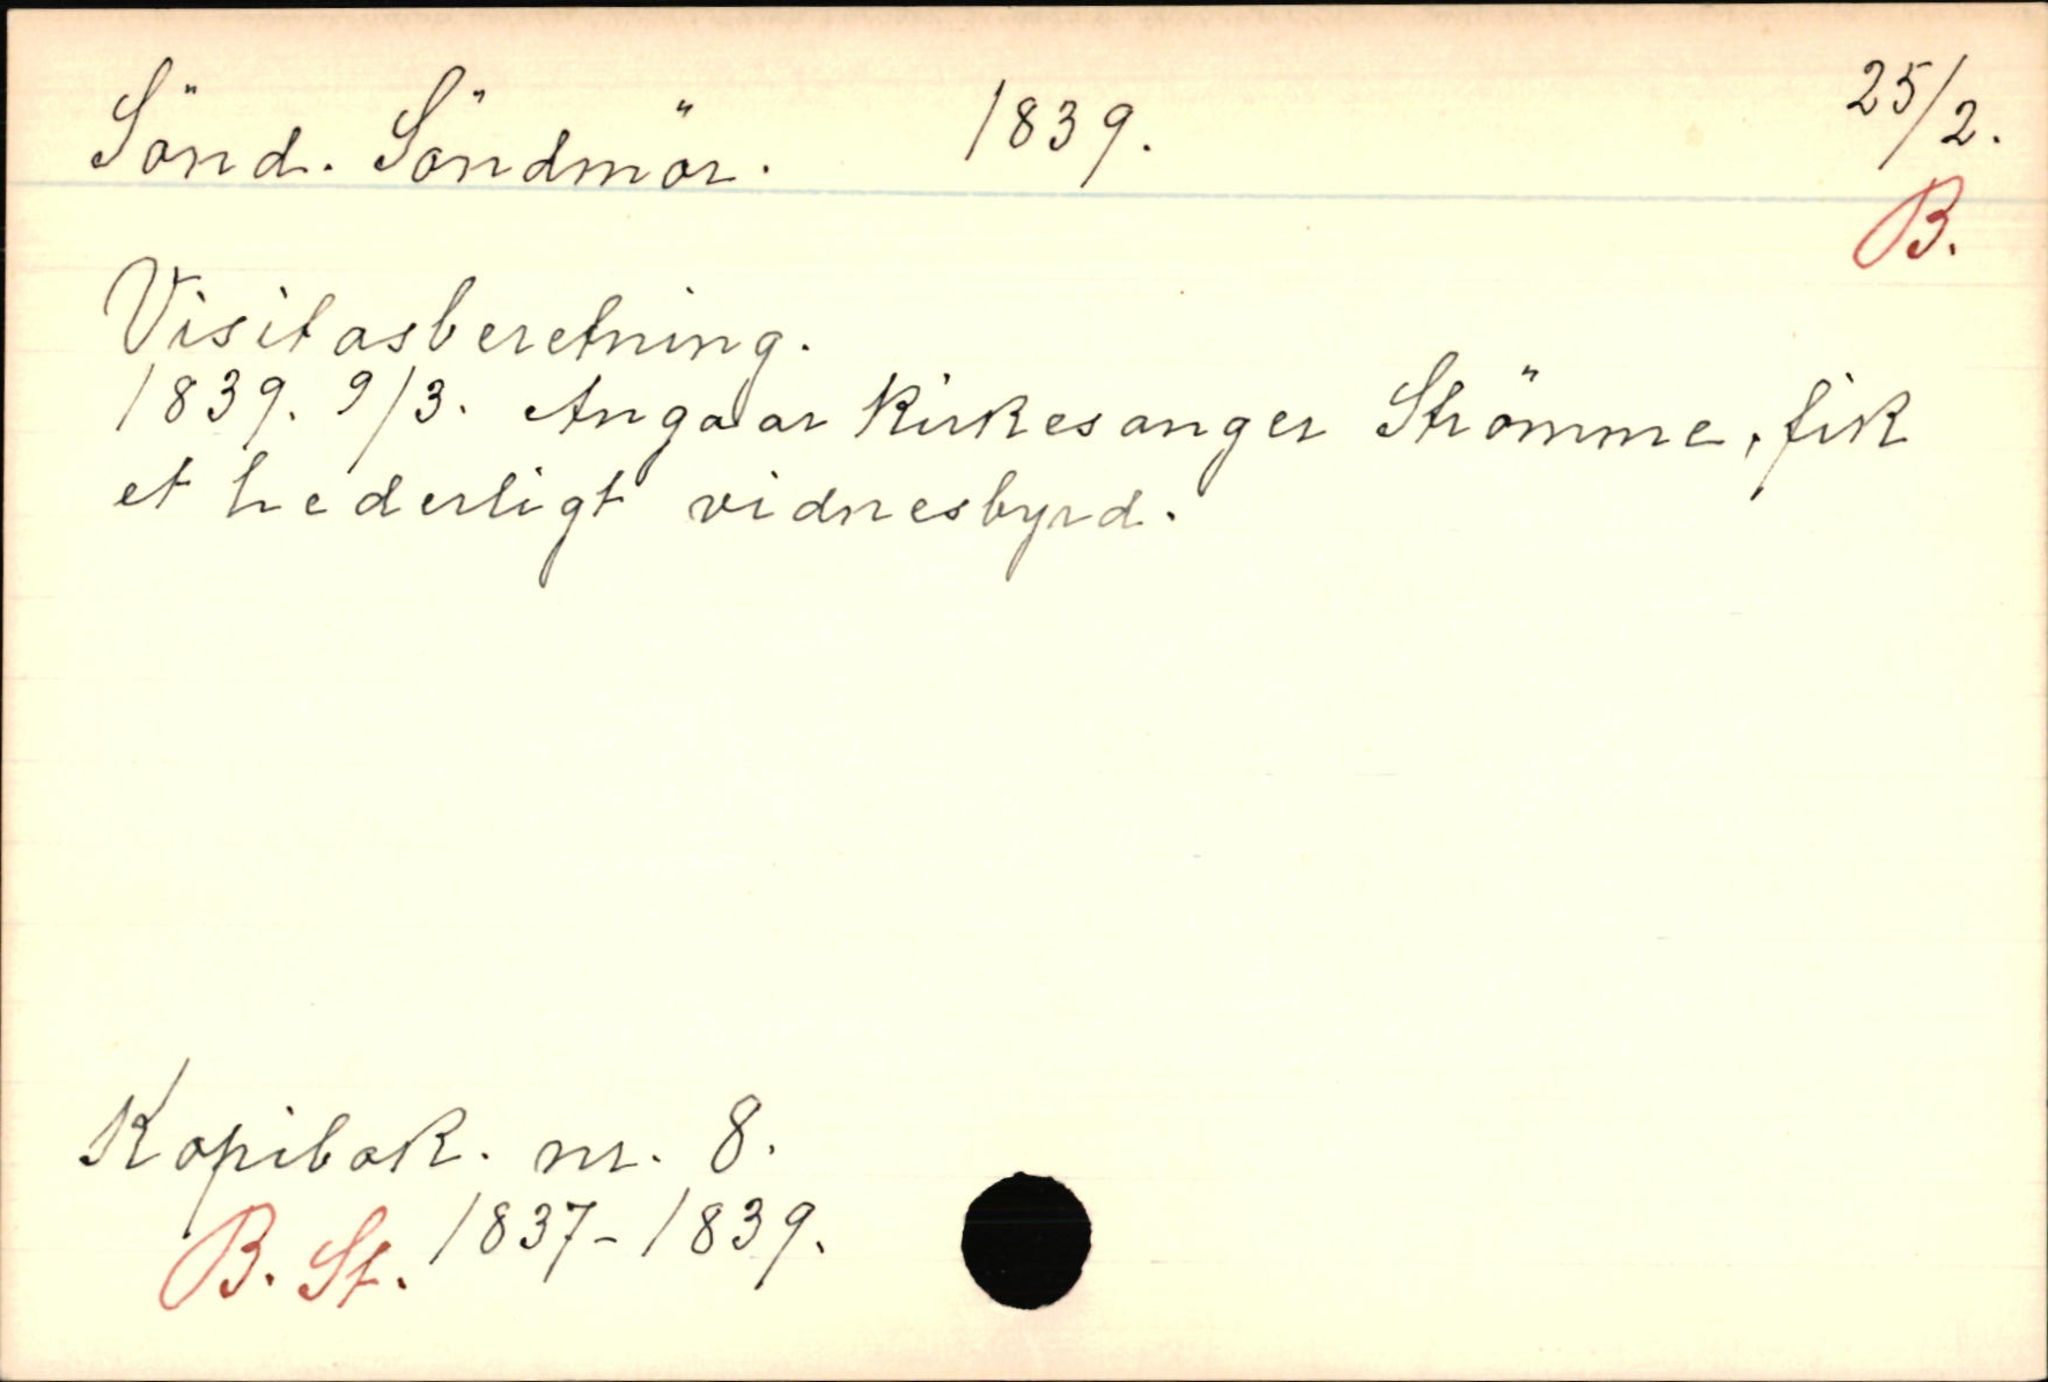 Sönd. Söndmör. 1839. 25/2.
B.
Visitasberetning.
1839. 9/3. Angaar Kirkesanger Strömme, fik
et hederligt vidnesbyrd.
Kopibok. nr. 8.
B. St. 1837-1839.